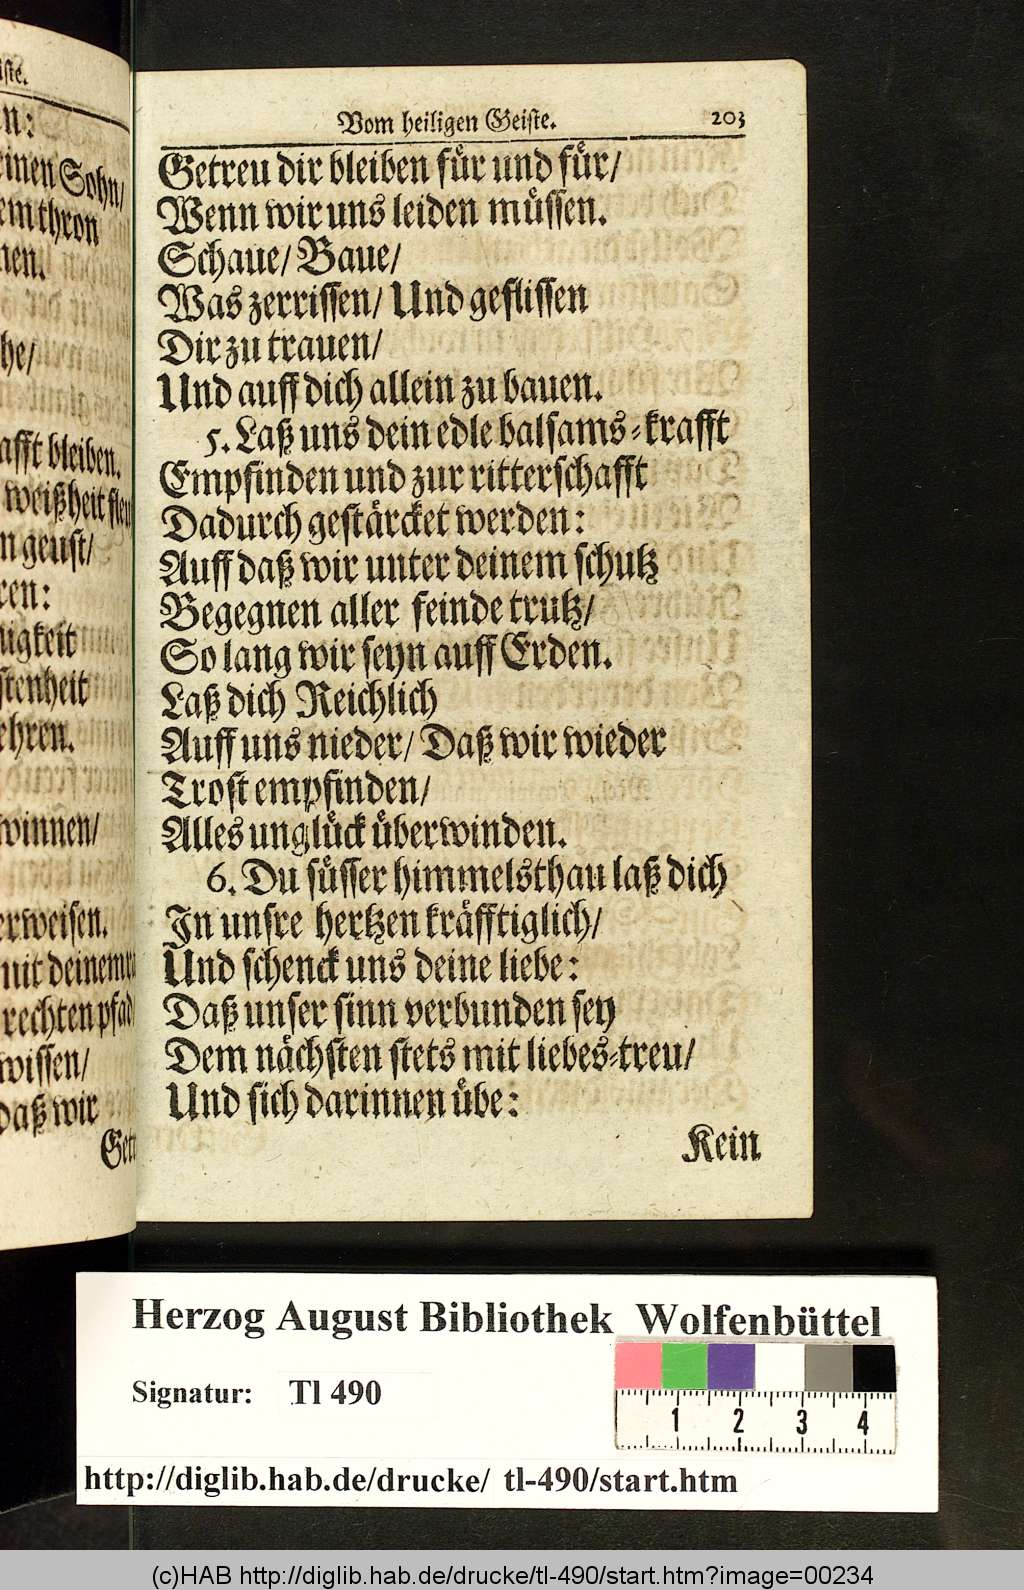 iste.
en:
einen Sohn/
em thron
nen.
he/
afft bleiben.
weißheit
n geust/
ren:
tigkeit
stenheit
ehren.
winnen/
erweisen.
mit deinem
rechten pfad
wissen/
daß wir
Getr
Vom heiligen Geiste. 203
Getreu dir bleiben für und für/
Wenn wir uns leiden müssen.
Schaue/ Baue/
Was zerrissen/ Und geflissen
Dir zu trauen/
Und auff dich allein zu bauen.
5. Laß uns dein edle balsams-krafft
Empfinden und zur ritterschafft
Dadurch gestärcket werden:
Auff daß wir unter deinem schutz
Begegnen aller feinde trutz/
So lang wir seyn auff Erden.
Laß dich Reichlich
Auff uns nieder/ Daß wir wieder
Trost empfinden/
Alles unglück überwinden.
6. Du süsser himmelsthau laß dich
In unsre hertzen kräfftiglich/
Und schenck uns deine liebe:
Daß unser sinn verbunden sey
Dem nächsten stets mit liebes-treu/
Und sich darinnen übe:
Kein
Herzog August Bibliothek Wolfenbüttel
Signatur: Tl 490
1 2 3 4
http://diglib.hab.de/drucke/ tl-490/start.htm
(c)HAB http://diglib.hab.de/drucke/tl-490/start.htm?image=00234